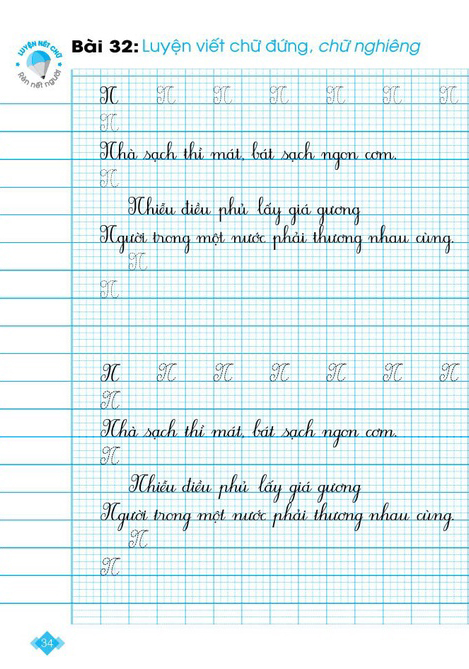 LUYỆN NÉT CHỮ
Rèn nết người
Bài 32: Luyện viết chữ đứng, chữ nghiêng
N N N N N N N
N
Nhà sạch thì mát, bát sạch ngon cơm.
N
Nhiễu điều phủ lấy giá gương
Người trong một nước phải thương nhau cùng.
N
N
N N N N N N N
N
Nhà sạch thì mát, bát sạch ngon cơm.
N
Nhiễu điều phủ lấy giá gương
Người trong một nước phải thương nhau cùng.
N
N
34